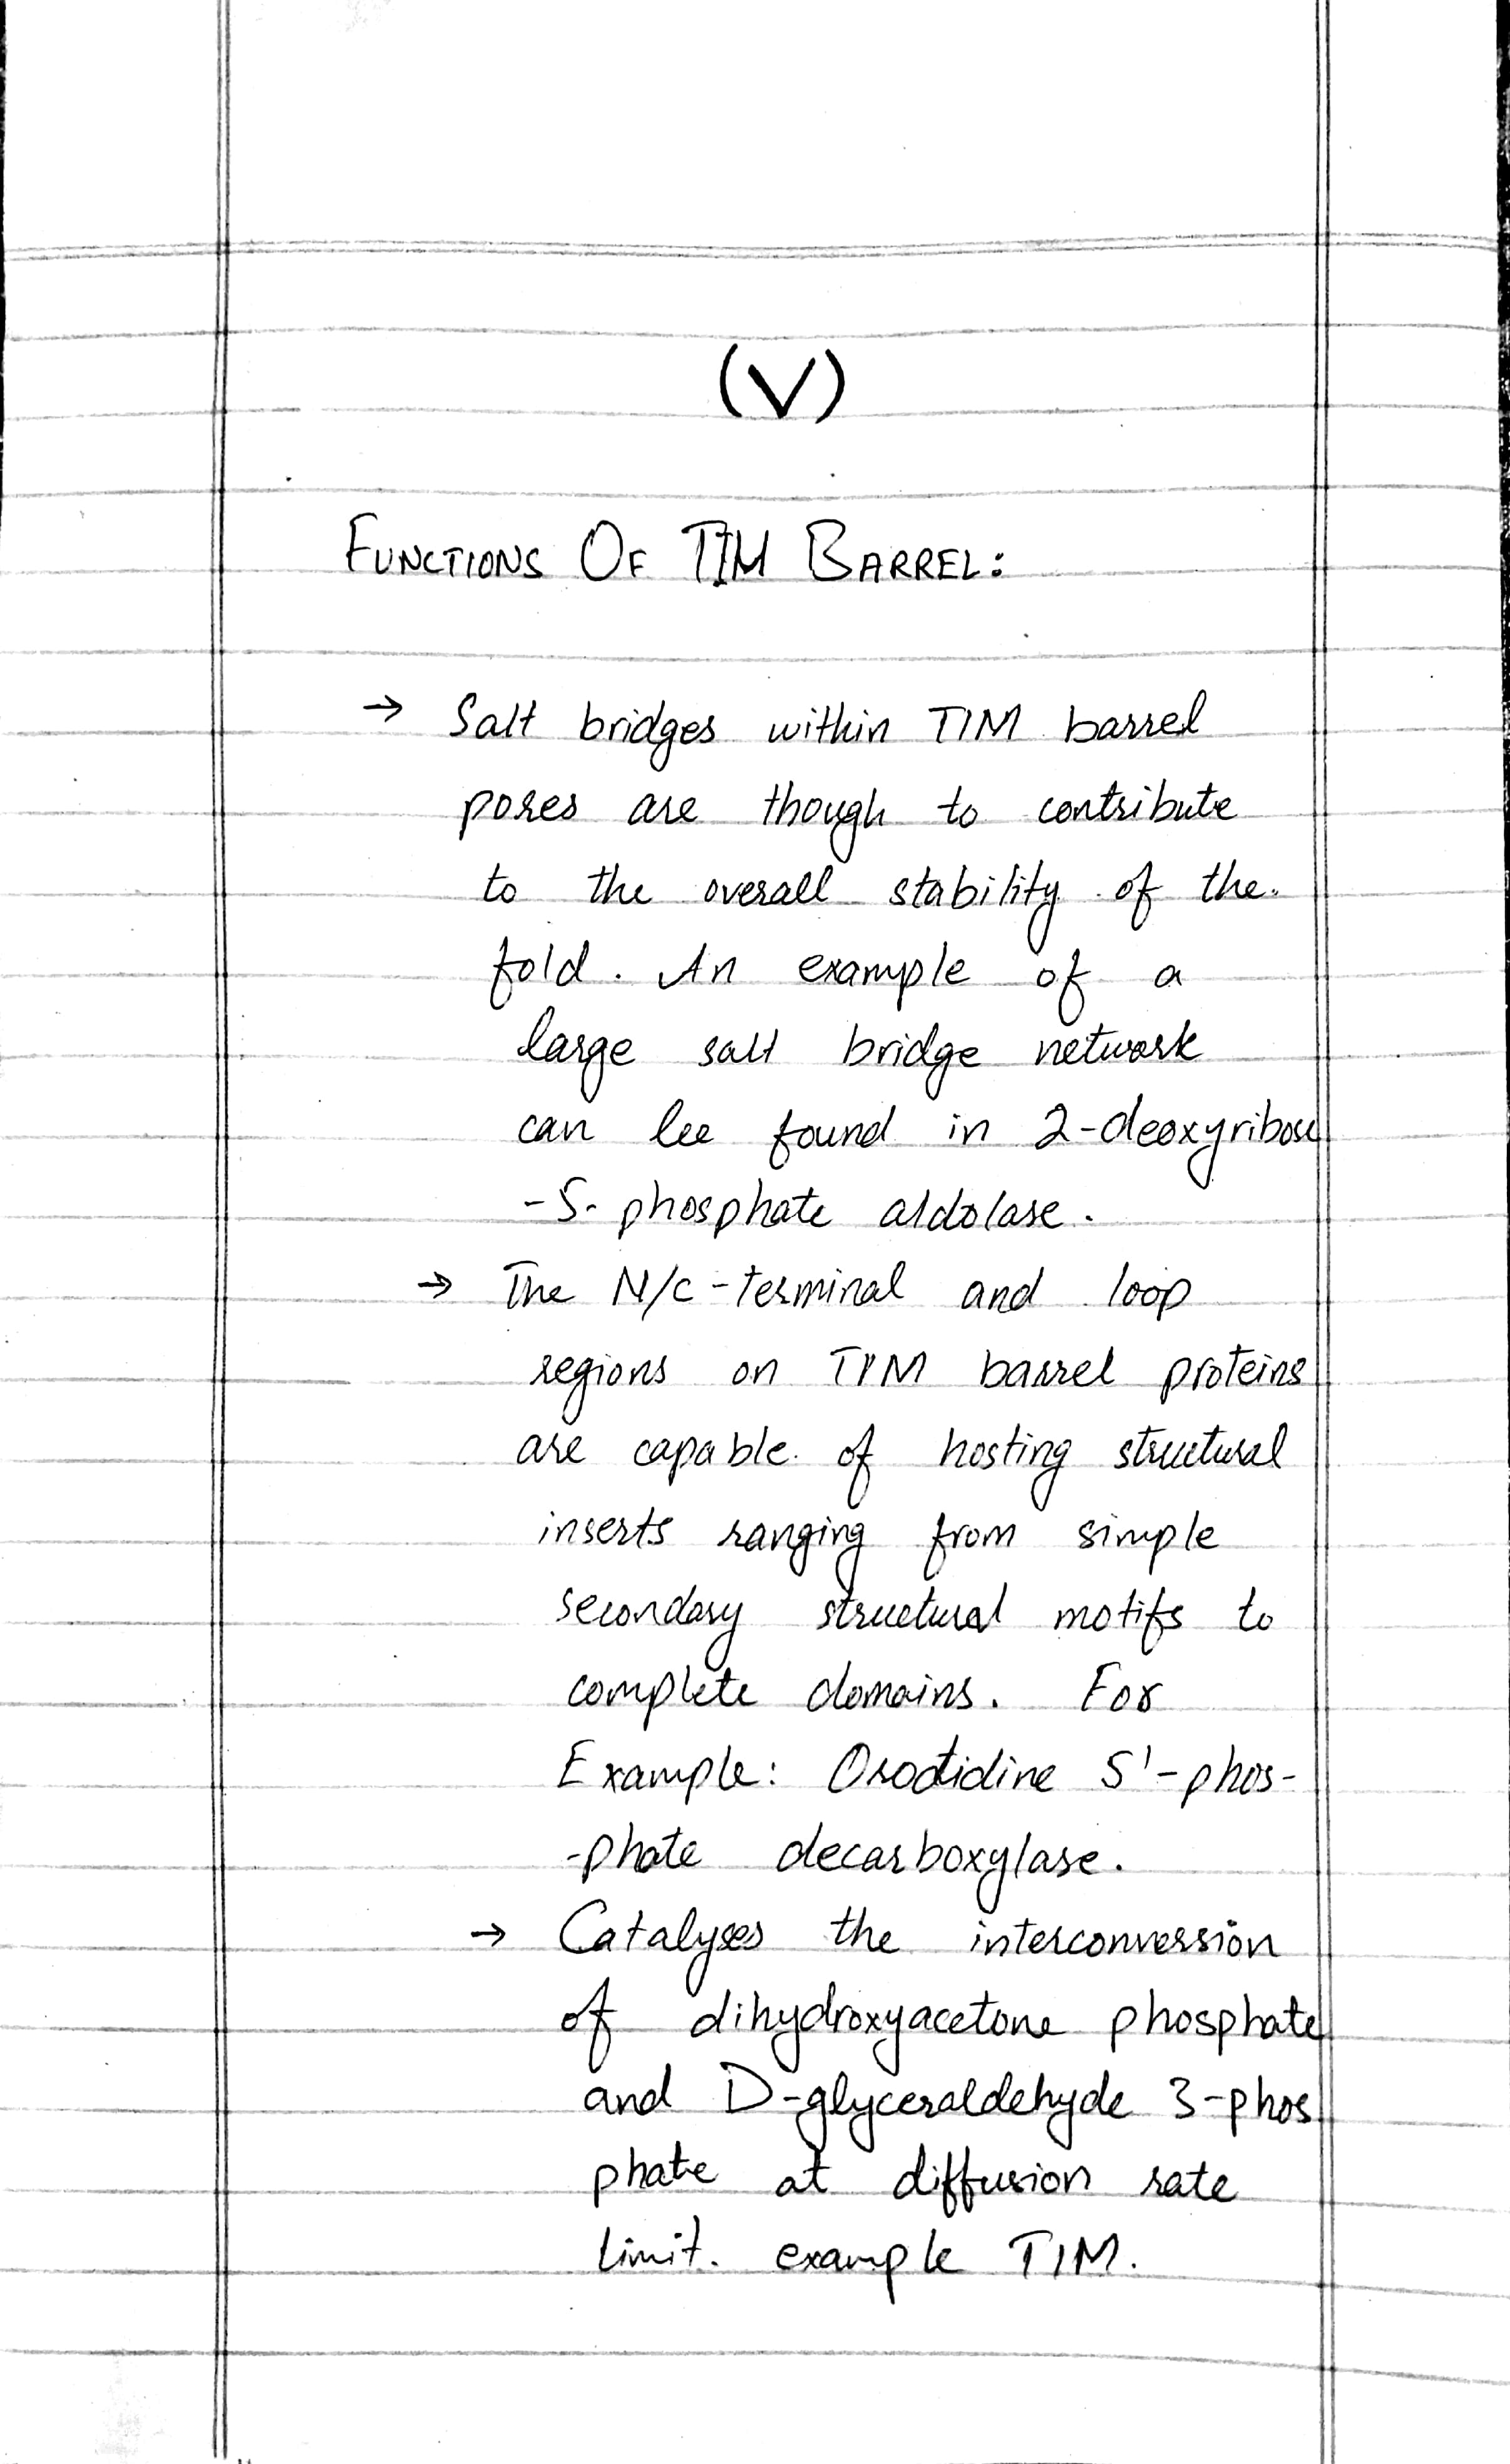 (V)
FUNCTIONS OF TIM BARREL:
→ Salt bridges within TIM barrel
pores are though to contribute
to the overall stability of the
fold. An example of a
large salt bridge network
can be found in 2-deoxyribose
-5- phosphate aldolase.
→ The N/C-terminal and loop
regions on TIM barrel proteins
are capable of hosting structural
inserts ranging from simple
secondary structural motifs to
complete domains. For
Example: Orotidine 5'-phos-
-phate decarboxylase.
→ Catalyses the interconversion
of dihydroxyacetone phosphate
and D-glyceraldehyde 3-phos
phate at diffusion rate
limit. example TIM.